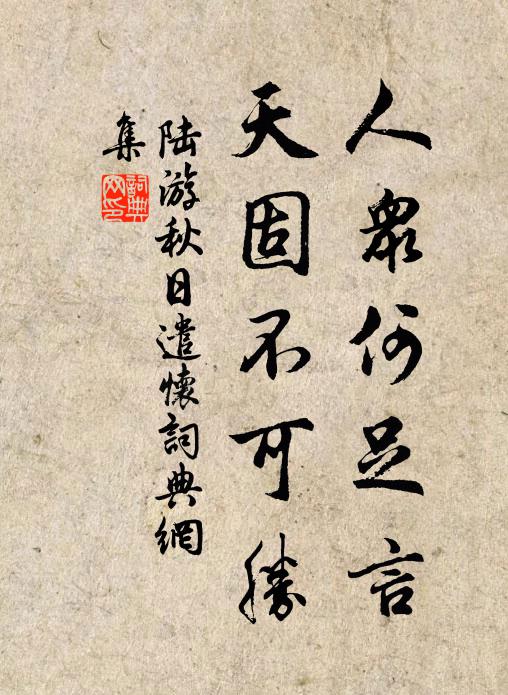 人衆何足言
天固不可勝
陸游秋日遣懷詞典網
集
詞典
网印